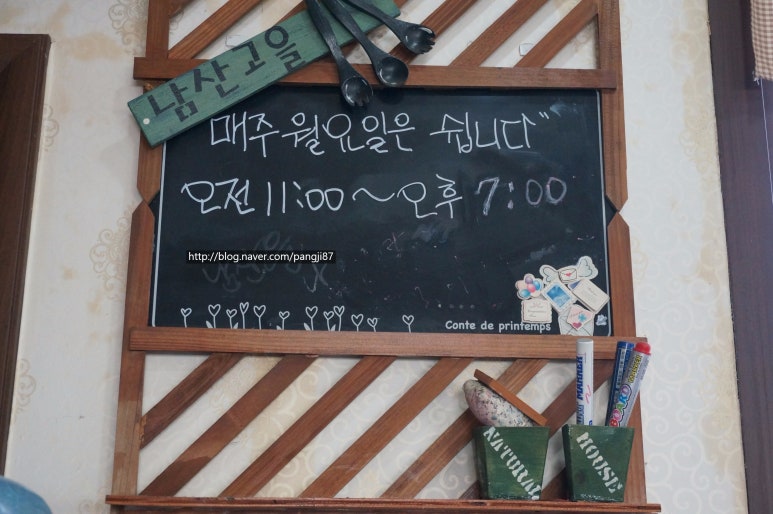 남산고을
매주 월요일은 쉽니다"
오전 11:00 ~ 오후 7:00
http://blog.naver.com/pangji87
Conte de printemps
MARKER
NATURAL
HOUSE